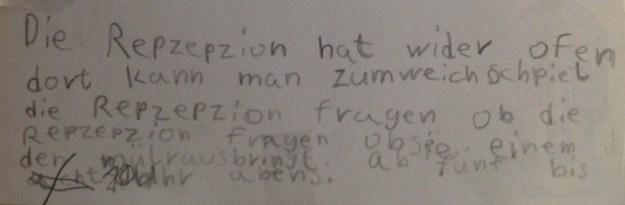 Die Repzepzion hat wider ofen
dort kann man zum weichschpiel
die Repzepzion fragen ob die
Repzepzion fragen ob sie einem
den mülrausbringt. ab fünf bis
Uhr abens.